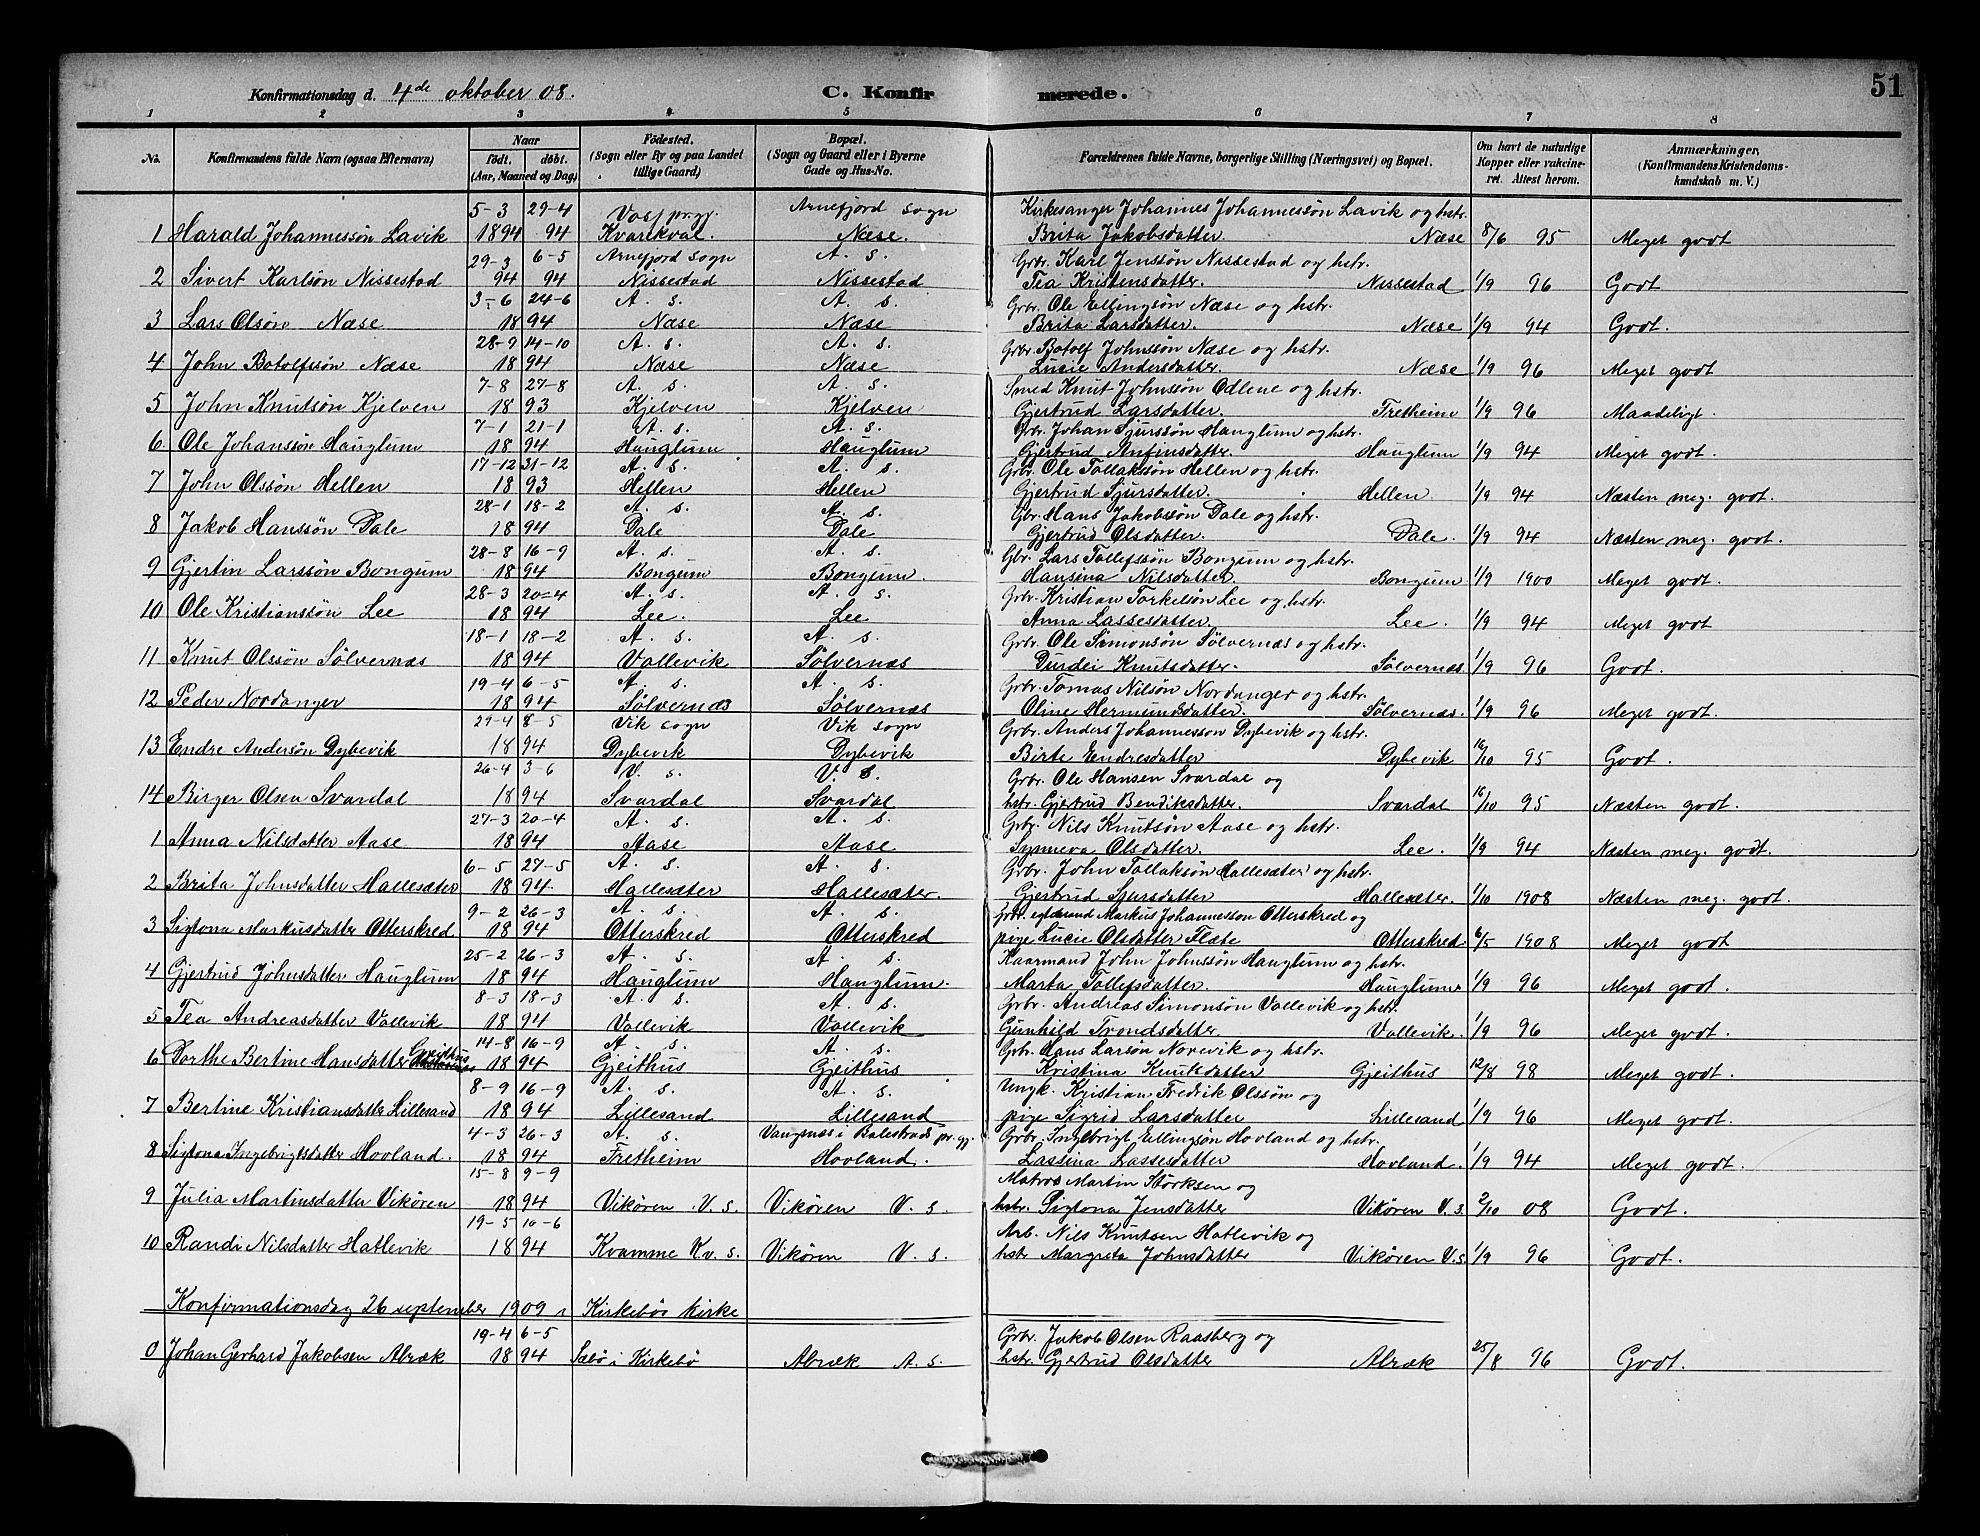 51
Konfirmationsdag d. 4de oktober 08. C. Konfirmerede.
1 2 3 4 5 6 7 8
No. Konfirmandens fulde Navn (ogsaa Efternavn) Naar födt. döbt. (Aar, Maaned og Dag) Födested. (Sogn eller By og paa Landet tillige Gaard) Bopæl. (Sogn og Gaard eller i Byerne Gade og Hus-No. Forældrenes fulde Navne, borgerlige Stilling (Næringsvei) og Bopæl. Om havt de naturlige Kopper eller vakcineret. Attest herom. Anmærkninger, (Konfirmandens Kristendomskundskab m. V.)
5-3 29-4 Voss pr.gj. Arnefjord sogn Kirkesanger Johannes Johannessön Lavik og hstr.
1 Harald Johannessön Lavik 1894 94 Kvarekval. Næse. Brita Jakobsdatter. Næse 8/6 95 Meget godt
29-3 6-5 Arnefjord sogn A. s. Grbr. Karl Jenssön Nissestad og hstr.
2 Sivert Karlsön Nissestad 94 94 Nissestad Nissestad Tea Kristensdatter. Nissestad 1/9 96 Godt
3-6 24-6 A. s. A. s. Grbr. Ole Ellingsön Næse og hstr.
3 Lars Olsön Næse 1894 Næse Næse Brita Larsdatter. Næse 1/9 94 Godt.
28-9 14-10 A. s. A. s. Grbr. Botolf Johnssön Næse og hstr.
4 John Botolfssön Næse 1894 Næse Næse Lucie Andersdatter. Næse 1/9 96 Meget godt
7-8 27-8 A. s. A. s. Smed Knut Johnssön Odlene og hstr.
5 John Knutsön Kjelven 1893 Kjelven Kjelven Gjertrud Larsdatter. Fretheim 1/9 96 Maadeligt.
7-1 21-1 A. s. A. s. Grbr. Johan Sjurssön Hauglum og hstr.
6 Ole Johanssön Hauglum 1894 Hauglum Hauglum Gjertrud Anfinsdatter. Hauglum 1/9 94 Meget godt.
17-12 31-12 A. s. A. s. Grbr. Ole Tollakssön Hellen og hstr.
7 John Olssön Hellen 1893 Hellen Hellen Gjertrud Sjursdatter. Hellen. 1/9 94 Næsten meg. godt.
28-1 18-2 A. s. A. s. Gbr. Hans Jakobssön Dale og hstr.
8 Jakob Hanssön Dale 1894 Dale Dale Gjertrud Olsdatter. Dale. 1/9 94 Næsten meg. godt.
28-8 16-9 A. s. A. s. Gbr. Lars Tollefssön Bongum og hstr.
9 Gjertin Larssön Bongum 1894 Bongum Bongum. Hansina Nilsdatter. Bongum 1/9 1900 Meget godt.
28-3 20-4 A. s. A. s. Grbr. Kristian Torkelsön Lee og hstr.
10 Ole Kristianssön Lee 1894 Lee. Lee Anna Lassesdatter. Lee. 1/9 94 Meget godt
18-1 18-2 A. s. A. s. Grbr. Ole Simonsön Sölvernæs og hstr.
11 Knut Olssön Sölvernæs 1894 Vallevik Sölvernæs Durdei Knutsdatter. Sölvernæs. 1/9 96 Godt.
19-4 6-5 A. s. A. s. Grbr. Tomas Nilsön Nordanger og hstr.
12 Peder Nordanger 1894 Sölvernæs Sölvernæs Oline Hermundsdatter. Sölvernæs. 1/9 96 Meget godt.
29-4 8-5 Vik sogn Vik sogn Grbr. Anders Johannesson Dybevik og hstr.
13 Endre Andersön Dybevik 1894 Dybevik Dybevik Birte Endresdatter Dybevik 16/10 95 Godt.
26-4 3-6 V. s. V. s. Grbr. Ole Hansen Svardal og
14 Birger Olsen Svardal 1894 Svardal Svardal hstr. Gjertrud Bendiksdatter. Svardal 16/10 95 Næsten godt.
27-3 20-4 A. s. A. s. Grbr. Nils Knutsön Aase og hstr.
1 Anna Nilsdatter Aase 1894 Aase Aase Synneva Olsdatter. Lee. 1/9 94 Næsten meg. godt.
6-5 27-5 A. s. A. s. Grbr. John Tollaksön Hallesæter og hstr.
2 Brita Johnsdatter Hallesæter 1894 Hallesæter Hallesæter. Gjertrud Sjursdatter Hallesæter. 1/10 1908 Næsten meg. godt.
9-2 26-3 A. s. A. s. Grbr. egtemand Markus Johannesson Otterskred og
3 Sigtona Markusdatter Otterskred 1894 Otterskred Otterskred pige Lucie Olsdatter Flæte Otterskred 6/5 1908 Meget godt
25-2 26-3 A. s. A. s. Kaarmand John Johnssön Hauglum og hstr.
4 Gjertrud Johnsdatter Hauglum 1894 Hauglum Hauglum. Marta Tollefsdatter. Hauglum 1/9 96 Meget godt.
8-3 18-3 A. s. A. s. Grbr. Andreas Simonsön Vallevik og hstr.
5 Tea Andreasdatter Vallevik 1894 Vallevik Vallevik Gunhild Trondsdatter. Vallevik. 1/9 96 Meget godt.
14-8 16-9 A. s. A. s. Grbr. Hans Larsön Norevik og hstr.
6 Dorthe Bertine Hansdatter Gjeithus 1894 Gjeithus Gjeithus Kristina Knutsdatter Gjeithus 12/8 98 Meget godt.
8-9 16-9 A. s. A. s. Ungk. Kristian Fredrik Olssön og
7 Bertine Kristiansdatter Lillesand 1894 Lillesand Lillesand pige Sigrid Larsdatter Lillesand 1/9 96 Meget godt.
4-3 26-3 A. s. Vangsnes i Balestrand pr. gj. Grbr. Ingebrigt Ellingsön Hovland og hstr.
8 Sigtona Ingebrigtsdatter Hovland. 1894 Fretheim Hovland. Lassina Lassesdatter Hovland. 1/9 94 Meget godt.
15-8 9-9 Matros Martin Störksen og
9 Julia Martinsdatter Vikören 1894 Vikören V. s. Vikören V. s. hstr. Sigtona Jensdatter Vikören V. s. 2/10 08 Godt.
19-5 10-6 Arb. Nils Knutsen Hatlevik og
10 Randi Nilsdatter Hatlevik 1894 Kvamme Kv. s. Vikören V. s. hstr Margreta Johnsdatter Vikören V. s. 1/9 96 Godt.
Konfirmationsdag 26 september 1909 i Kirkebö kirke
19-4 6-5 Grbr. Jakob Olsen Raasberg og
0 Johan Gerhard Jakobsen Abræk 1894 Sæbö i Kirkebö Abræk A. s. hstr. Gjertrud Olsdatter Abræk 25/8 96 Godt.